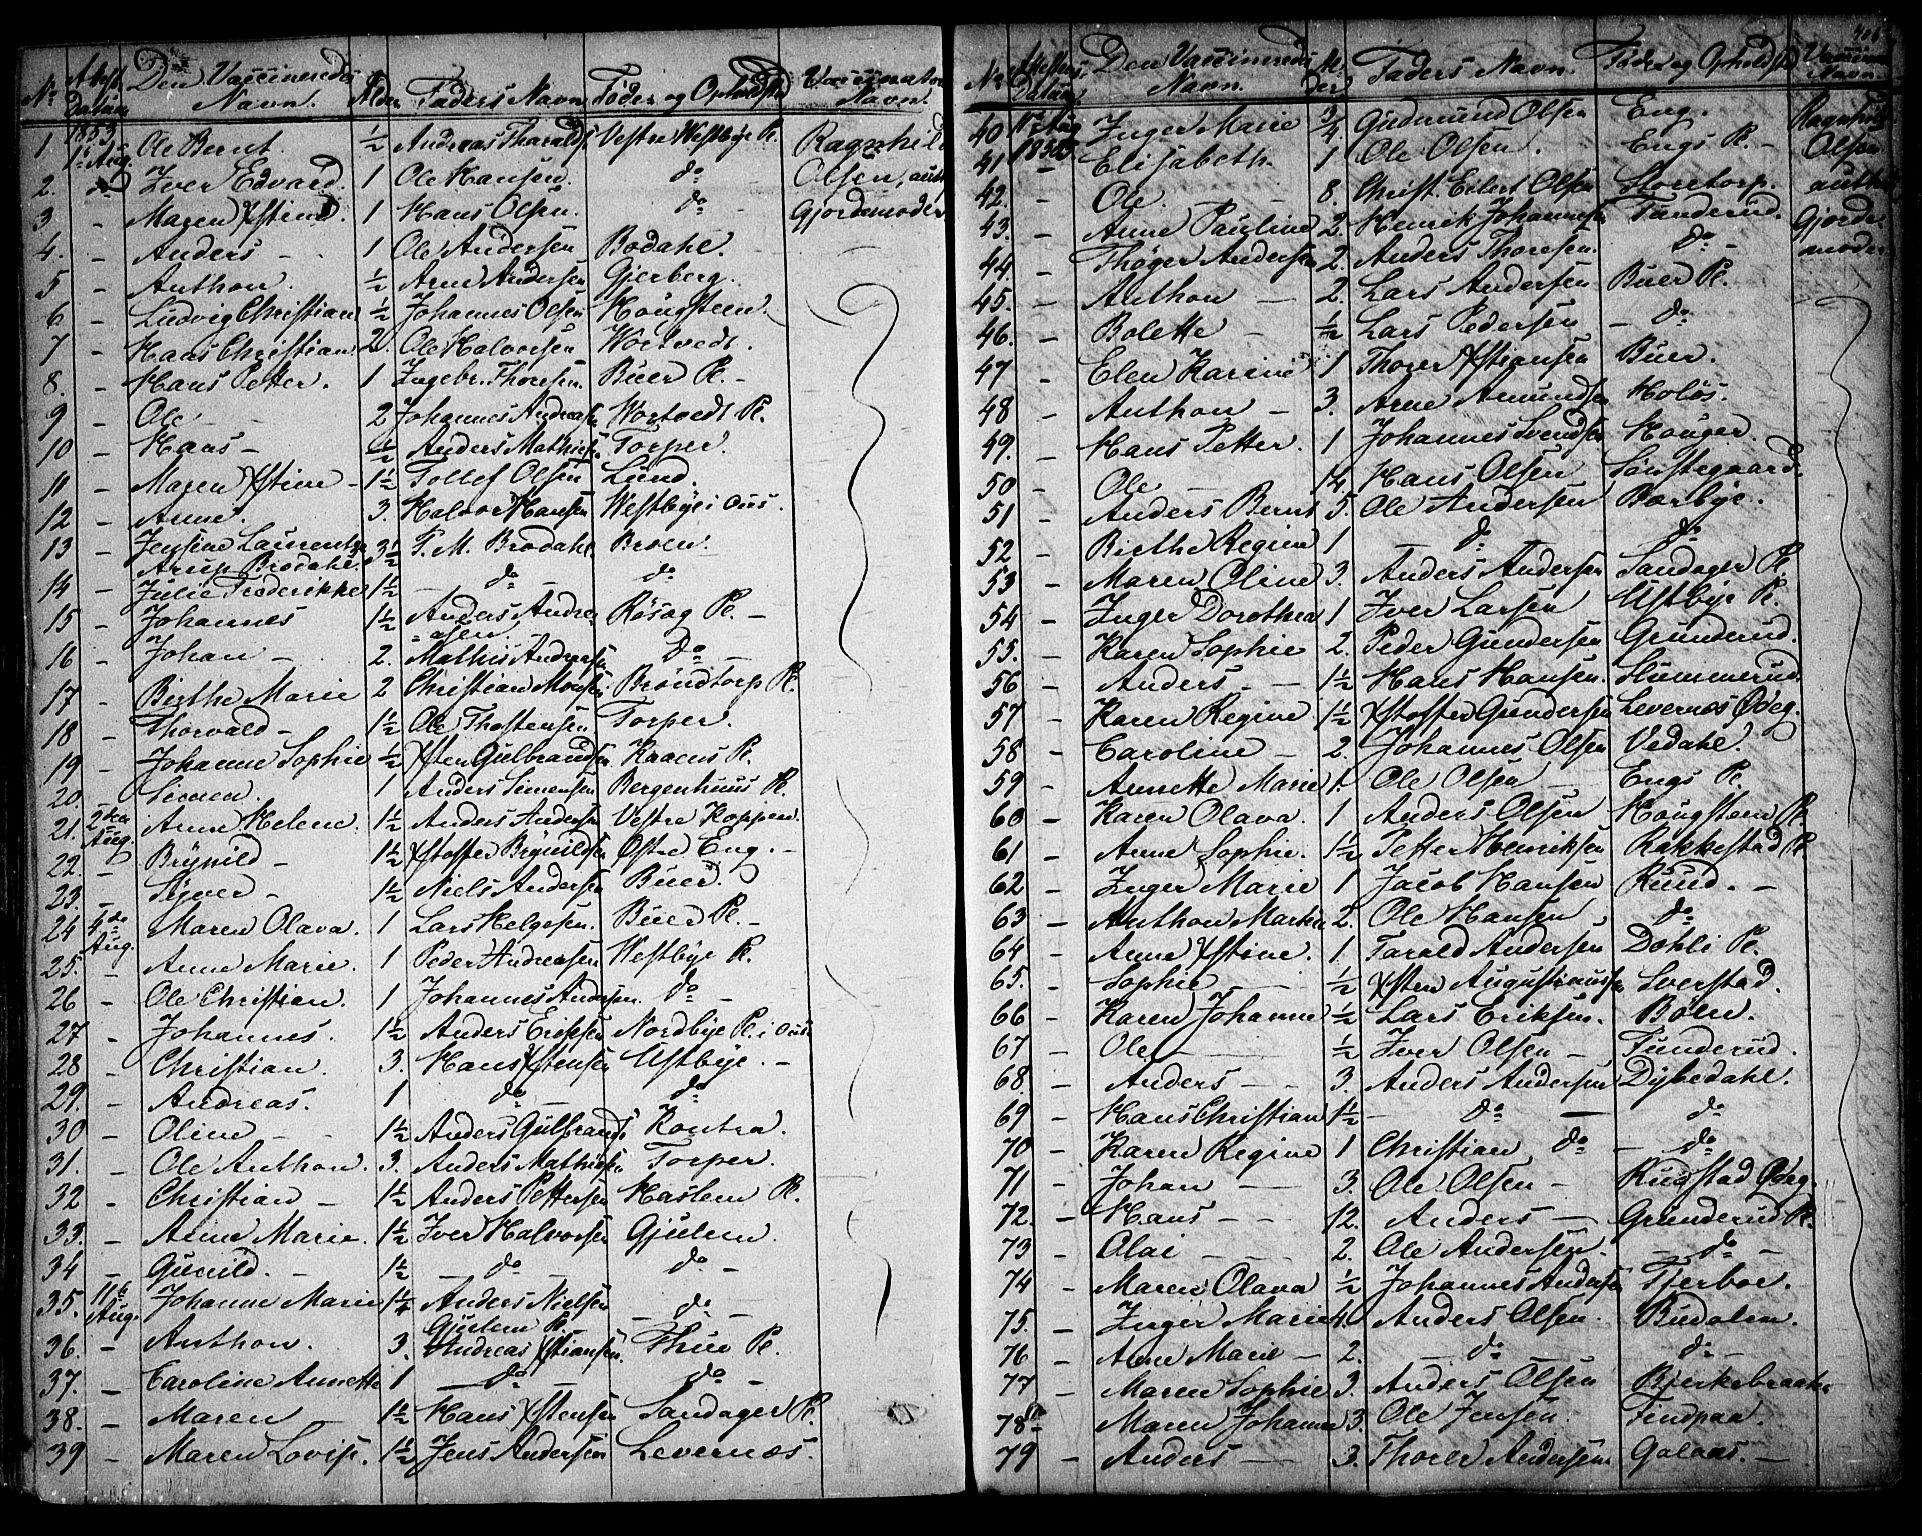 No Attest Datum Den Vaccineredes Navn. Alder Faders Navn Føde- og Opholdsted Vaccinateurens Navn.
1853
1 1ste Aug. Ole Bernt. ½ Andreas Tharalds. Vestre Westbye Pl. Ragnhild
2. do Iver Edvard. 1 Ole Hansen. do Olsen, auth
3 - Maren Xstine. 1 Hans Olsen. do Gjordemoder
4. - Anders - 1 Ole Andersen Bodahl.
5 - Anthon. ½ Arne Andersen Gjerberg.
6 - Ludvig Christian ½ Johannes Olsen Hougsteen.
7 - Hans Christian. 2. Ole Halvorsen Wortvedt.
8. - Hans Petter. 1 Ingebr. Thoresen. Buer Pl. -
9 - Ole - 2 Johannes Andreasen Wortvedt Pl.
10 - Hans - ½ Anders Mathisen Torper.
11 - Maren Xstine - 1½ Tollef Olsen Lund.
12 - Anne. 3. Halvor Hansen Westbye i Aas.
13 - Jensine Laurentze 3½ P. M. Brodahl Broen.
Arup Brodahl.
14 - Julie Frederikke 1½ - do - do
15 - Johannes 1½ Anders Andre- Røsæg Pl. -
asen.
16 - Johan - 2. Mathis Andersen do -
17 - Birthe Marie 2 Christian Monsen Brøndtorp Pl.
18 - Thorvald - 1½ Ole Thostensen Torper.
19 - Johanne Sophie ½ Xsten Gulbrandsen Kaaens Pl.
20. - Simen. 1 Anders Simensen Bergenhuus Pl.
21. 2den Aug. Anne Helene. 1½ Anders Andersen Vestre Koppen
22. - Brynild - 1½ Xstoffer Brynildsen Østre Eng. -
23. - Syver - 1½ Niels Andersen Buer.
24 4de Aug. Maren Olava. 1 Lars Helgesen. Buer Pl. -
25. - Anne Marie. 1 Peder Andreasen Westbye Pl.
26 - Ole Christian. 1 Johannes Andersen. do -
27 - Johannes. 1½ Anders Ericksen Nordbye Pl. i Aas
28 - Christian. 3. Hans Xstensen Ustbye. -
29. - Andreas. 1 do - do
30 - Oline - - 1½ Anders Gulbrands. Kontra.
31. - Ole Anthon. 3. Anders Mathisen Torper.
32 - Christian - 1½ Anders Pettersen Haslem Pl.
33. - Anne Marie. 1½ Iver Halvorsen Gjulem.
34 - Gunild. - 1½ - do - do -
35. 11te Aug. Johanne Marie 1¼ Anders Nielsen - do -
Gjulem Pl.
36. - Anthon. 3. Andreas Xstiansen. Thue Pl.
37. - Caroline Annette 1 - do - do -
38. - Maren - 1½ Hans Xstensen Sandager Pl.
39 - Maren Lovise. 1½ Jens Andersen Levernæs.
No Attestens Datum. Den Vaccineredes Navn. Alder Faders Navn. Føde og Opholdsted Vaccinat. Navn.
40 11te Aug Inger Marie ¾ Gudmund Olsen Eng. Ragnhild
41 1853 Elisabeth. 1 Ole Olsen. Engs Pl. Olsen
42. - Ole. - 8. Christ. Eilert Olsen Storetorp. auth
43. - Anne Pauline 2. Henrik Johannesen Tanderud. Gjorde-
44. - Thøger Andersen 2. Anders Thoresen. do moder
45. - Anthon - 2. Lars Andersen Buer Pl.
46. - Bolette - ½ Lars Pedersen - do
47 - Elen Karine 1 Thorer Xstiansen Buer.
48 - Anthon - 3. Arne Amundsen Holøs.
49. - Hans Petter. 1 Johannes Svendsen Houger.
50 - Ole - 14. Hans Olsen Sønstegaard.
51 - Anders Bernt 5. Ole Andersen Borbye.
52 - Birthe Regine 1 do - do
53 - Maren Oline 3. Anders Andersen Sandager Pl.
54 - Inger Dorothea 1 Iver Larsen Ustbye Pl.
55. - Karen Sophie 2. Peder Gundersen Grunderud.
56 - Anders - 1½ Hans Hansen. Slummerud.
57 - Karen Regine 1½ Xstoffer Gundersen Levernæs Ødeg.
58 - Caroline - 2. Johannes Olsen Vedahl.
59 - Annette Marie 1. Ole Olsen - Engs Pl.
60 - Karen Olava. 1 Anders Olsen Hougsteen Pl.
61 - Anne Sophie. 1½ Petter Henriksen Rakkestad Pl.
62 - Inger Marie 1 Jacob Hansen Ruud. -
63 - Anthon Martin 2. Ole Hansen do
64 - Anne Xstine. 1. Tarald Andersen Dohli Pl.
65. - Sophie - ½ Xsten Augustinussen Sverstad.
66 - Karen Johanne ½ Lars Eriksen. Bøen.
67 - Ole - ½ Iver Olsen - Tunderud.
68. - Anders - 3. Anders Andersen Dybedahl.
69 - Hans Christian 1½ - do - do
70 - Karen Regine 1 Christian do - do
71 - Johan - 3. Ole Olsen - Rudstad Ødeg.
72. - Hans - - 12. Anders - Grunderud Pl.
73 - Olai - 2. Ole Andersen. - do -
74 - Maren Olava ½ Johannes Andersen Tjerbøl.
75. - Inger Marie 4. Anders Olsen. Budalen.
76 - Anne Marie - 2. - do - do -
77 - Maren Sophie 3. Anders Olsen Bjerkebraate
78 - Maren Johanne 3. Ole Jensen. Findpaa.
79 Anders - 3. Thorer Andersen Galaas. -